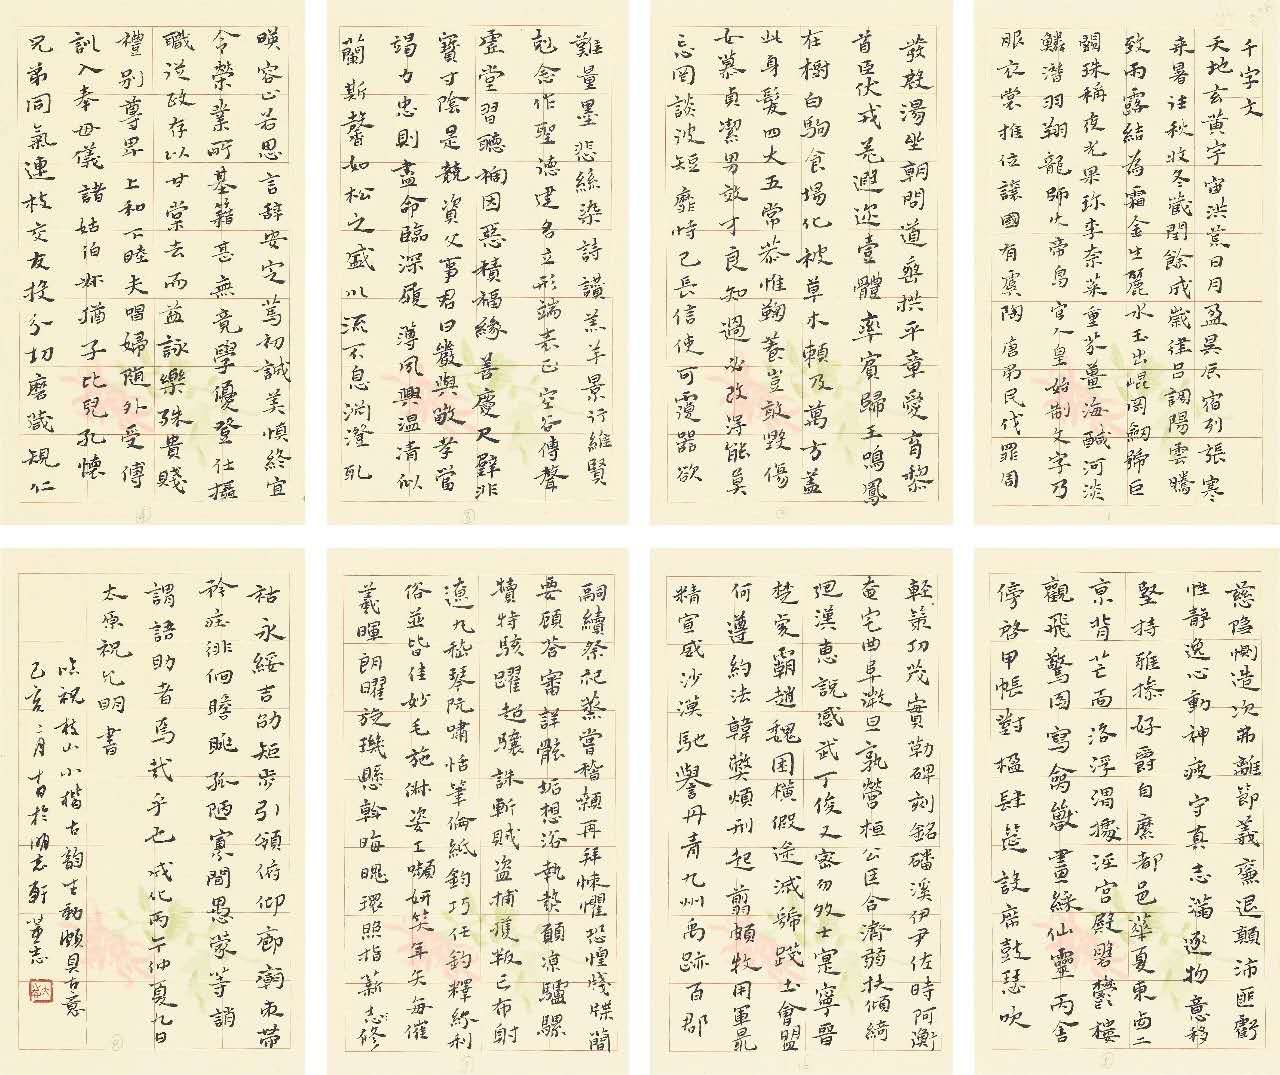 千字文
天地玄黃宇宙洪荒日月盈昃辰宿列張寒
来暑往秋收冬藏閏餘成歲律呂調陽雲騰
致雨露結為霜金生麗水玉出崐岡劍號巨
闕珠稱夜光果珍李柰菜重芥薑海鹹河淡
鱗潛羽翔龍師火帝鳥官人皇始制文字乃
服衣裳推位讓國有虞陶唐弔民伐罪周
發殷湯坐朝問道垂拱平章愛育黎
首臣伏戎羌遐迩壹體率賓歸王鳴鳳
在樹白駒食場化被草木賴及萬方盖
此身髮四大五常恭惟鞠養豈敢毀傷
女慕貞潔男效才良知過必改得能莫
忘罔談彼短靡恃己長信使可覆器欲
難量墨悲絲染詩讚羔羊景行維賢
剋念作聖德建名立形端表正空谷傳聲
虛堂習聽禍因惡積福緣善慶尺璧非
寶寸陰是競資父事君曰嚴與敬孝當
竭力忠則盡命臨深履薄夙興温凊似
蘭斯馨如松之盛川流不息淵澄取
暎容止若思言辞安定篤初誠美慎終宜
令榮業所基籍甚無竟學優登仕攝
職從政存以甘棠去而益詠樂殊貴賤
禮別尊卑上和下睦夫唱婦随外受傅
訓入奉母儀諸姑伯叔猶子比兒孔懷
兄弟同氣連枝交友投分切磨箴規仁
慈隐惻造次弗離節義廉退顛沛匪虧
性靜逸心動神疲守真志滿逐物意移
堅持雅操好爵自縻都邑華夏東西二
京背芒面洛浮渭據涇宮殿磐鬱樓
觀飛驚圖寫禽獸畫綵仙靈丙舍
傍啓甲帳對楹肆筵設席鼓瑟吹
輕策功茂實勒碑刻銘磻溪伊尹佐時阿衡
奄宅曲阜微旦孰營桓公匡合濟弱扶傾綺
迴漢惠說感武丁俊乂密勿多士寔寧晉
楚更霸趙魏困橫假途滅虢踐土會盟
何遵約法韓弊煩刑起翦頗牧用軍最
精宣威沙漠馳譽丹青九州禹跡百郡
嗣續祭祀蒸嘗稽顙再拜悚懼恐惶牋牒簡
要顧答審詳骸垢想浴執熱願凉驢騾
犢特駭躍超驤誅斬賊盗捕獲叛亡布射
遼丸嵇琴阮嘯恬筆倫紙鈞巧任釣釋紛利
俗並皆佳妙毛施淑姿工嚬妍笑年矢每催
羲暉朗曜旋璣懸斡晦魄環照指薪志修
祜永綏吉劭矩步引領俯仰廊廟束帶
矜莊徘徊瞻眺孤陋寡聞愚蒙等誚
謂語助者焉哉乎也成化丙午仲夏九日
太原祝允明書
临祝枝山小楷古韵生動頗具古意
己亥二月十日於明志軒董志